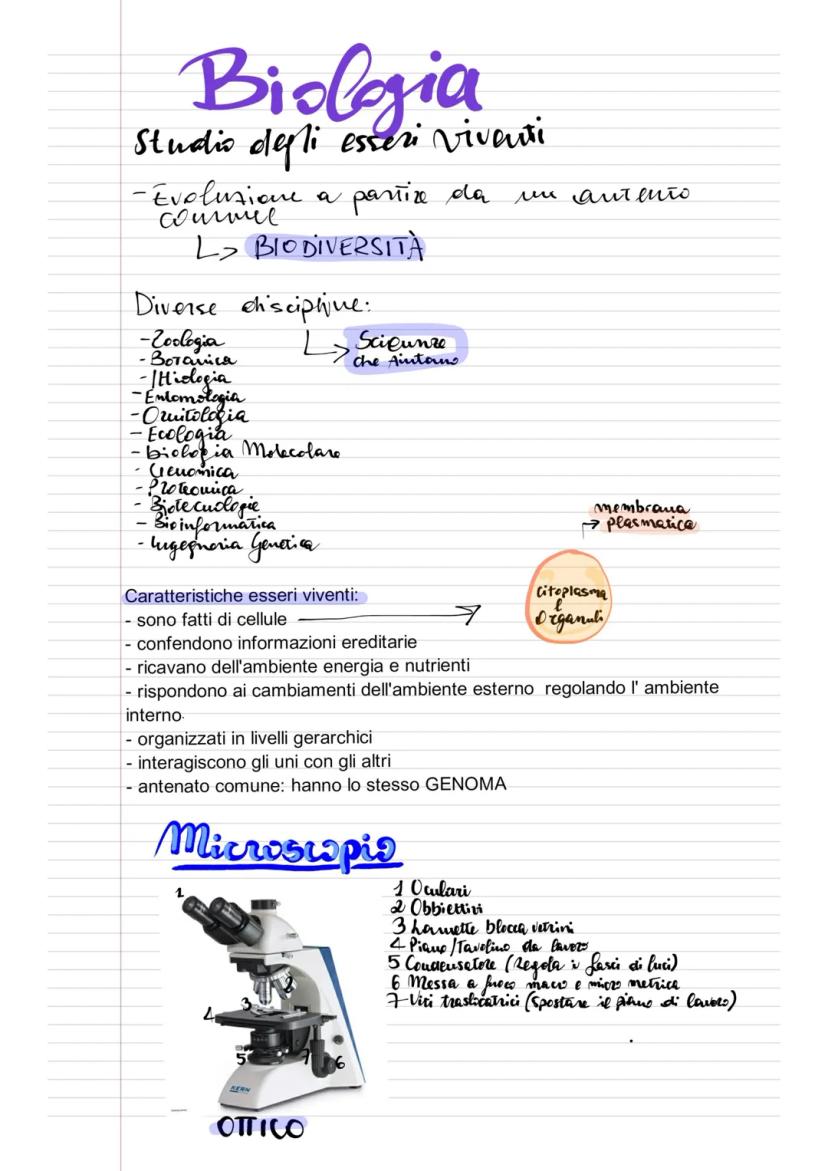 Biologia
Studio degli esseri viventi
- Evoluzione a partire da un antento
comune
BIODIVERSITÀ
Diverse discipline:
- Zoologia
Scienze
- Botanica
che Aiutano
- Ittiologia
- Entomologia
- Ornitologia
- Ecologia
- biologia Molecolare
- Genomica
- Proteomica
- Biotecnologie
- Bioinformatica
- Ingegneria Genetica
membrana
plasmatica
citoplasma
e
Organuli
Caratteristiche esseri viventi:
- sono fatti di cellule
- confendono informazioni ereditarie
- ricavano dell'ambiente energia e nutrienti
- rispondono ai cambiamenti dell'ambiente esterno regolando l' ambiente
interno.
- organizzati in livelli gerarchici
- interagiscono gli uni con gli altri
- antenato comune: hanno lo stesso GENOMA
Microscopio
1 Oculari
2 Obbiettivi
3 Lamette blocca vetrini
4 Piano/Tavolino da lavoro
5 Condensatore (Regola i fasci di luci)
6 Messa a fuoco macro e micro metrica
7 Viti traslicatrici (Spostare il piano di lavoro)
1
2
3
4
5
7
6
KERN
OTTICO